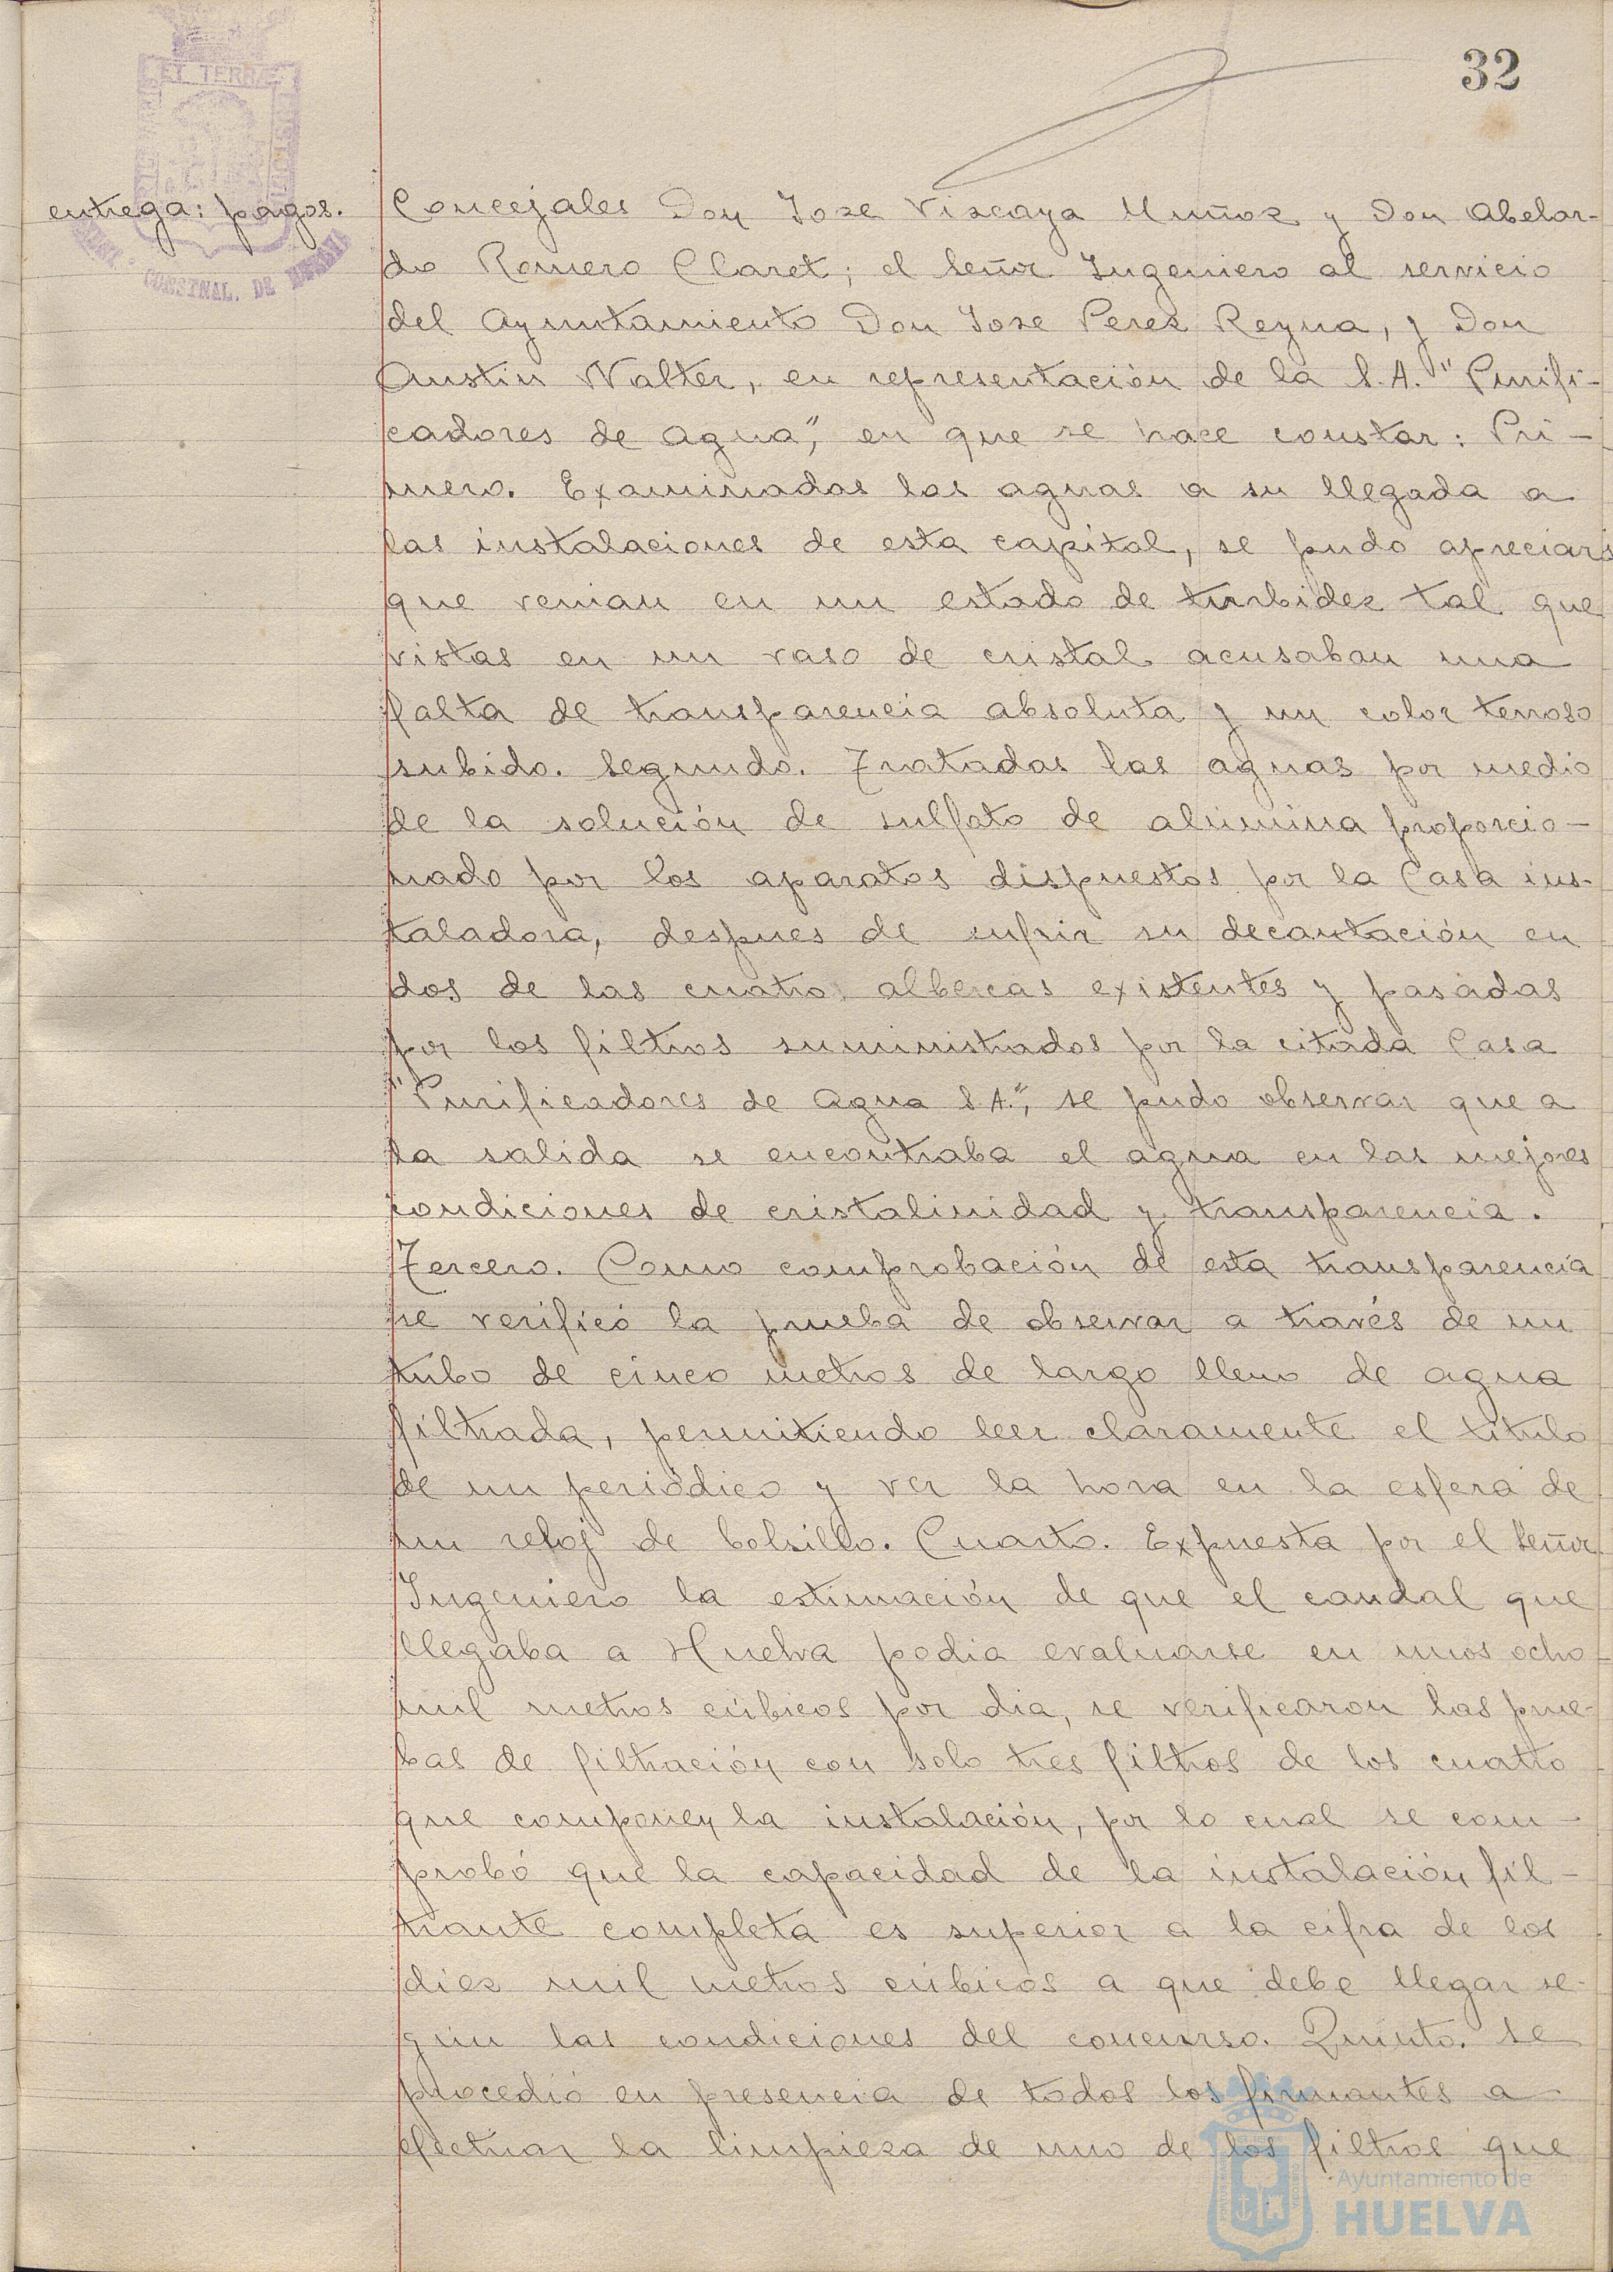 32
entrega: pagos.
Concejales Don Jose Viscaya Muñoz y Don Abelar-
do Romero Claret; el Señor Ingeniero al servicio
del Ayuntamiento Don Jose Perez Reyna, y Don
Austin Walter, en representación de la S.A. "Purifi-
cadores de agua", en que se hace constar: Pri-
mero. Examinadas las aguas a su llegada a
las instalaciones de esta capital, se pudo apreciar
que venian en un estado de turbidez tal que
vistas en un vaso de cristal acusaban una
falta de transparencia absoluta y un color terroso
subido. Segundo. Tratadas las aguas por medio
de la solución de sulfato de alumina proporcio-
nado por los aparatos dispuestos por la Casa ins-
taladora, despues de sufrir su decantación en
dos de las cuatro albercas existentes y pasadas
por los filtros suministrados por la citada Casa
"Purificadores de Agua S.A.", se pudo observar que a
la salida se encontraba el agua en las mejores
condiciones de cristalinidad y transparencia.
Tercero. Como comprobación de esta transparencia
se verificó la prueba de observar a través de un
tubo de cinco metros de largo lleno de agua
filtrada, permitiendo leer claramente el título
de un periódico y ver la hora en la esfera de
un reloj de bolsillo. Cuarto. Expuesta por el Señor
Ingeniero la estimación de que el caudal que
llegaba a Huelva podia evaluarse en unos ocho
mil metros cúbicos por dia, se verificaron las prue-
bas de filtración con solo tres filtros de los cuatro
que componen la instalación, por lo cual se com-
probó que la capacidad de la instalación fil-
trante completa es superior a la cifra de los
diez mil metros cúbicos a que debe llegar se-
gún las condiciones del concurso. Quinto. Se
procedió en presencia de todos los firmantes a
efectuar la limpieza de uno de los filtros que
ET TERRÆ
CONSTNAL. DE
Ayuntamiento de
HUELVA